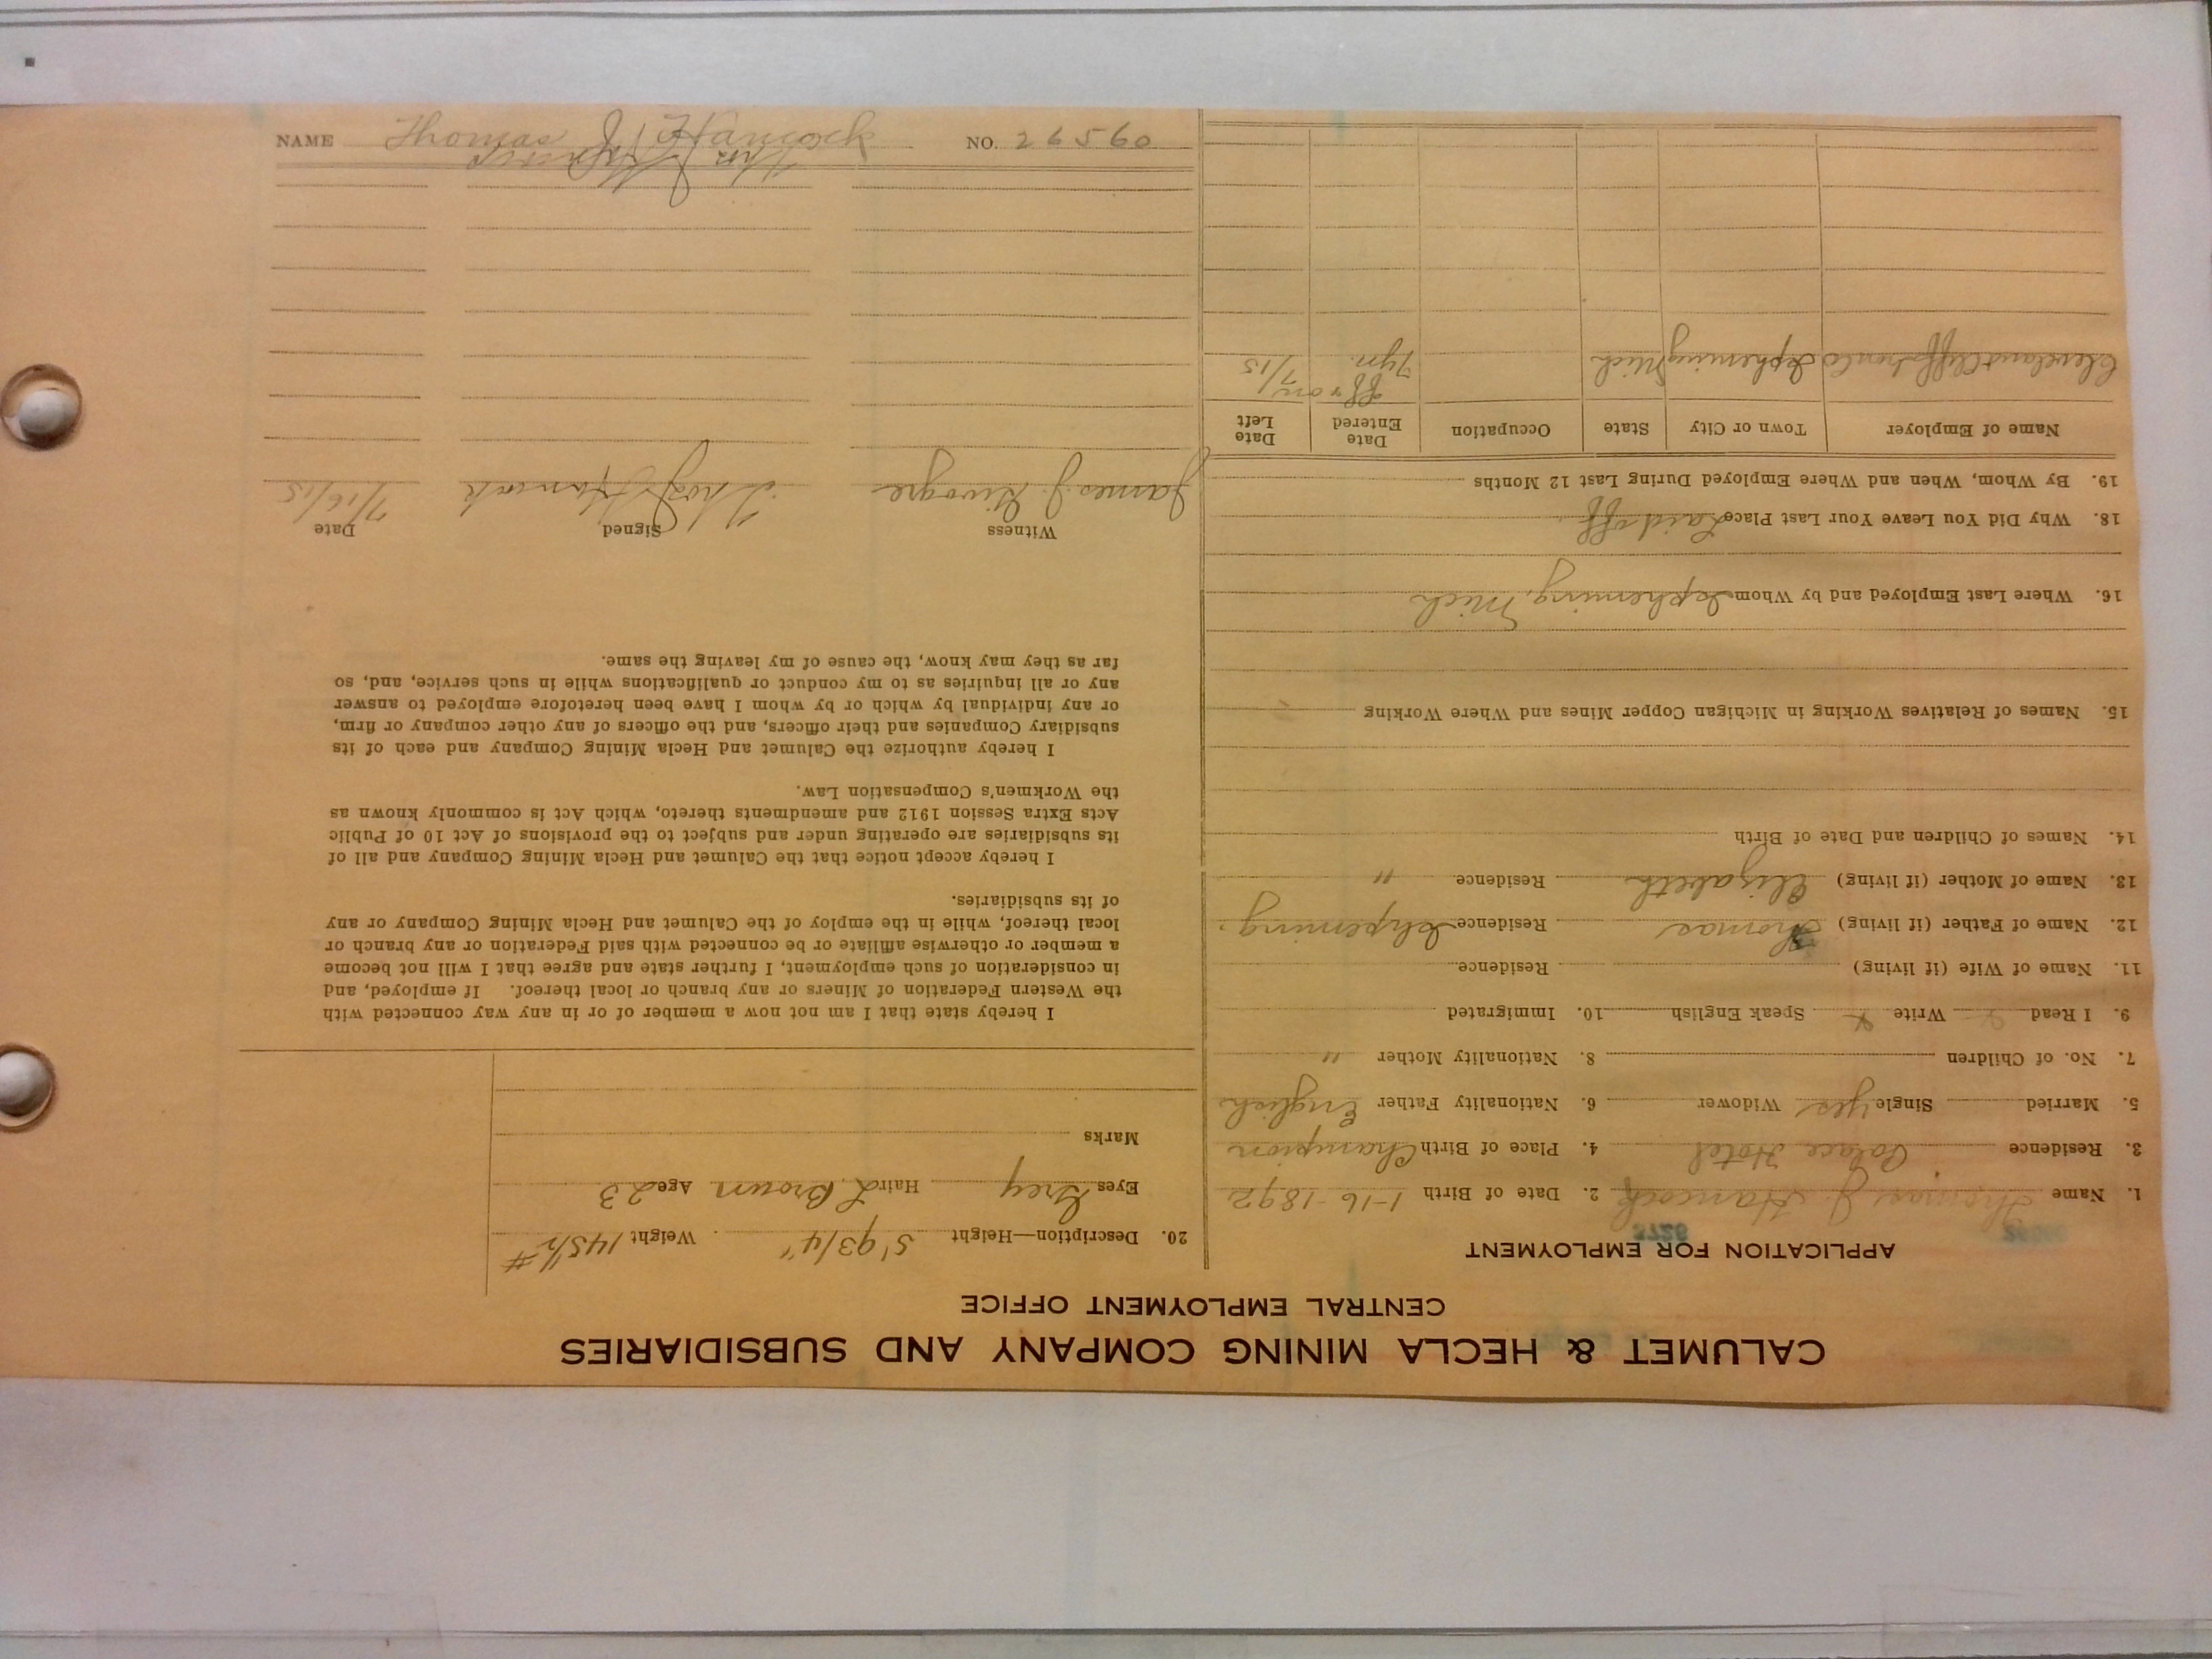 CALUMET & HECLA MINING COMPANY AND SUBSIDIARIES
CENTRAL EMPLOYMENT OFFICE
APPLICATION FOR EMPLOYMENT
5726
1. Name Thomas J. Hancock 2. Date of Birth 1-16-1892
3. Residence Palace Hotel 4. Place of Birth Champion
5. Married Single Yes Widower 6. Nationality Father English
7. No. of Children 8. Nationality Mother "
9. I Read Write Speak English 10. Immigrated
11. Name of Wife (if living) Residence
12. Name of Father (if living) Thomas Residence Ishpeming.
13. Name of Mother (if living) Elizabeth Residence "
14. Names of Children and Date of Birth
15. Names of Relatives Working in Michigan Copper Mines and Where Working
16. Where Last Employed and by Whom Ishpeming, Mich
18. Why Did You Leave Your Last Place Laid off.
19. By Whom, When and Where Employed During Last 12 Months
Name of Employer Town or City State Occupation Date Entered Date Left
Cleveland Cliffs Ishpeming Mich off & on 7 yrs. 7/15
20. Description—Height 5' 9 3/4" Weight 145 1/2 #
Eyes Grey Hair L. Brown Age 23
Marks
I hereby state that I am not now a member of or in any way connected with
the Western Federation of Miners or any branch or local thereof. If employed, and
in consideration of such employment, I further state and agree that I will not become
a member or otherwise affiliate or be connected with said Federation or any branch or
local thereof, while in the employ of the Calumet and Hecla Mining Company or any
of its subsidiaries.
I hereby accept notice that the Calumet and Hecla Mining Company and all of
its subsidiaries are operating under and subject to the provisions of Act 10 of Public
Acts Extra Session 1912 and amendments thereto, which Act is commonly known as
the Workmen's Compensation Law.
I hereby authorize the Calumet and Hecla Mining Company and each of its
subsidiary Companies and their officers, and the officers of any other company or firm,
or any individual by which or by whom I have been heretofore employed to answer
any or all inquiries as to my conduct or qualifications while in such service, and, so
far as they may know, the cause of my leaving the same.
Witness Signed Date
James J. Thos J Hancock 7/16/15
NAME Thomas J. Hancock NO. 26560